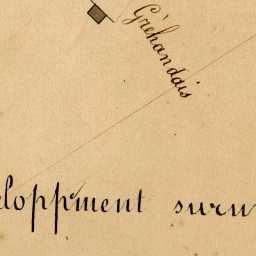 Gréhandais
loppment suru